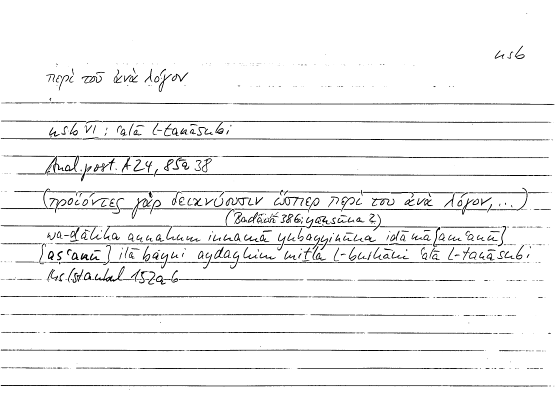 nsb
περὶ τοῦ ἀνὰ λόγον
nsb VI : ʿalā l-tanāsubi
Anal. post. A 24, 85a 38
(προϊόντες γὰρ δεικνύουσιν ὥσπερ περὶ τοῦ ἀνὰ λόγον, ...)
(Badawī 386:
wa-ḏālika annahum innamā yubayyinūna iḏā mā [amʿanū]
[aṣʿanū] ilā bayni aydayhim miṯla l-burhāni ʿalā l-tanāsubi
Hs Istanbul 152a 6